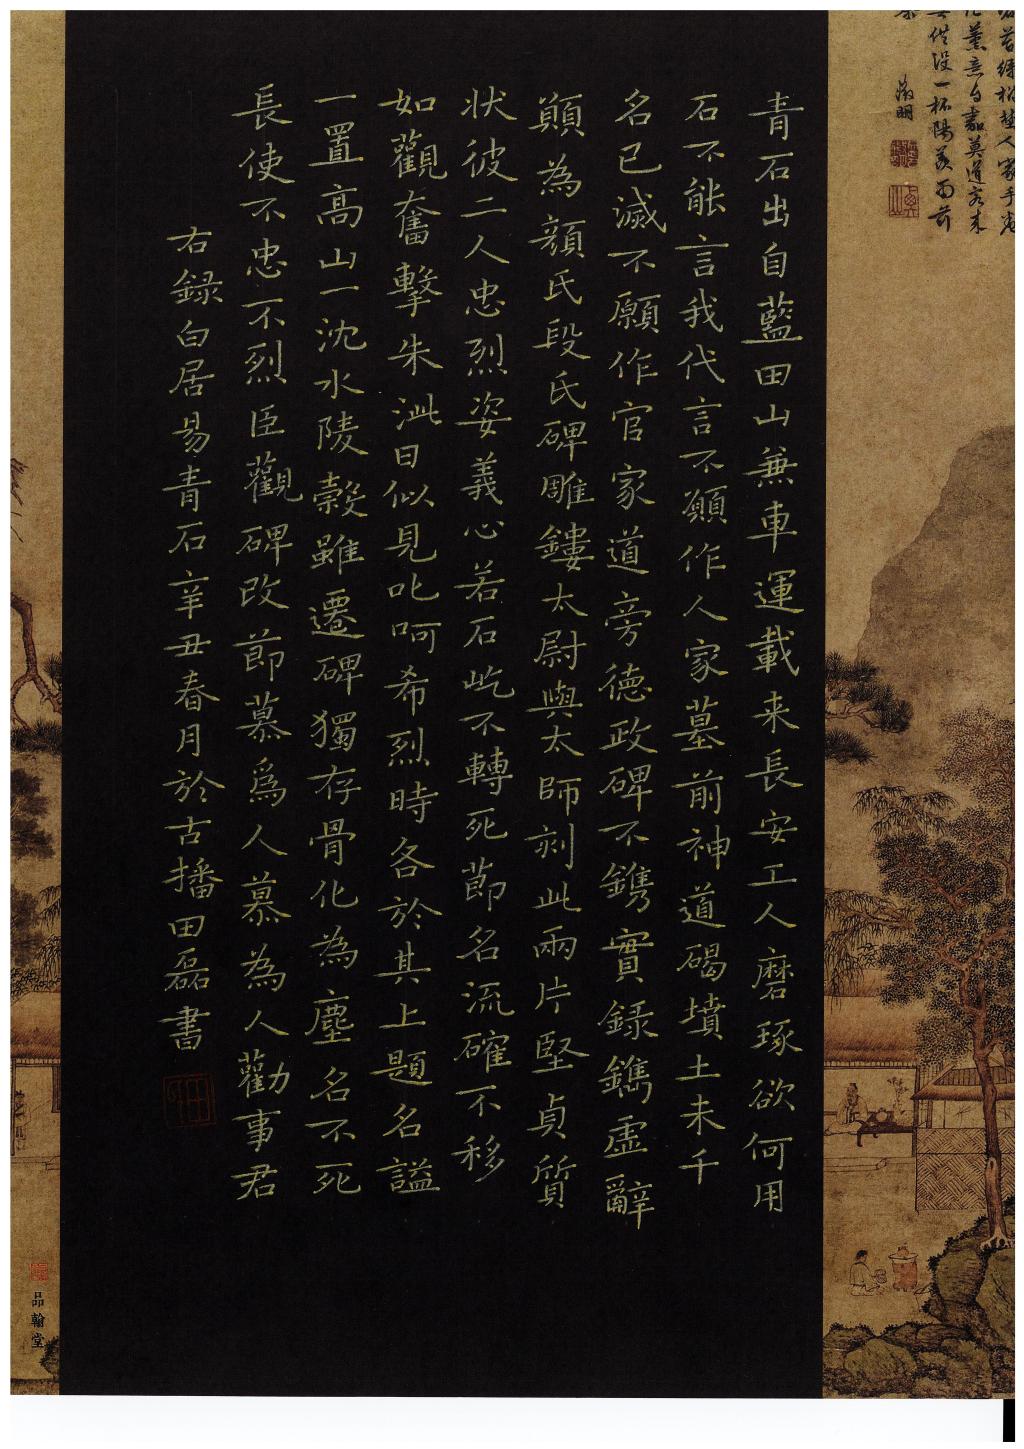 青石出自藍田山兼車運載来長安工人磨琢欲何用
石不能言我代言不願作人家墓前神道碣墳土未千
名已滅不願作官家道旁德政碑不鐫實録鐫虛辭
顚為顔氏段氏碑雕鏤太尉與太師刻此兩片堅貞質
状彼二人忠烈姿義心若石屹不轉死節名流確不移
如觀奮擊朱泚日似見叱呵希烈時各於其上題名謚
一置高山一沈水陵穀雖遷碑獨存骨化為塵名不死
長使不忠不烈臣觀碑改節慕爲人慕為人勸事君
右録白居易青石辛丑春月於古播田磊書
品翰堂